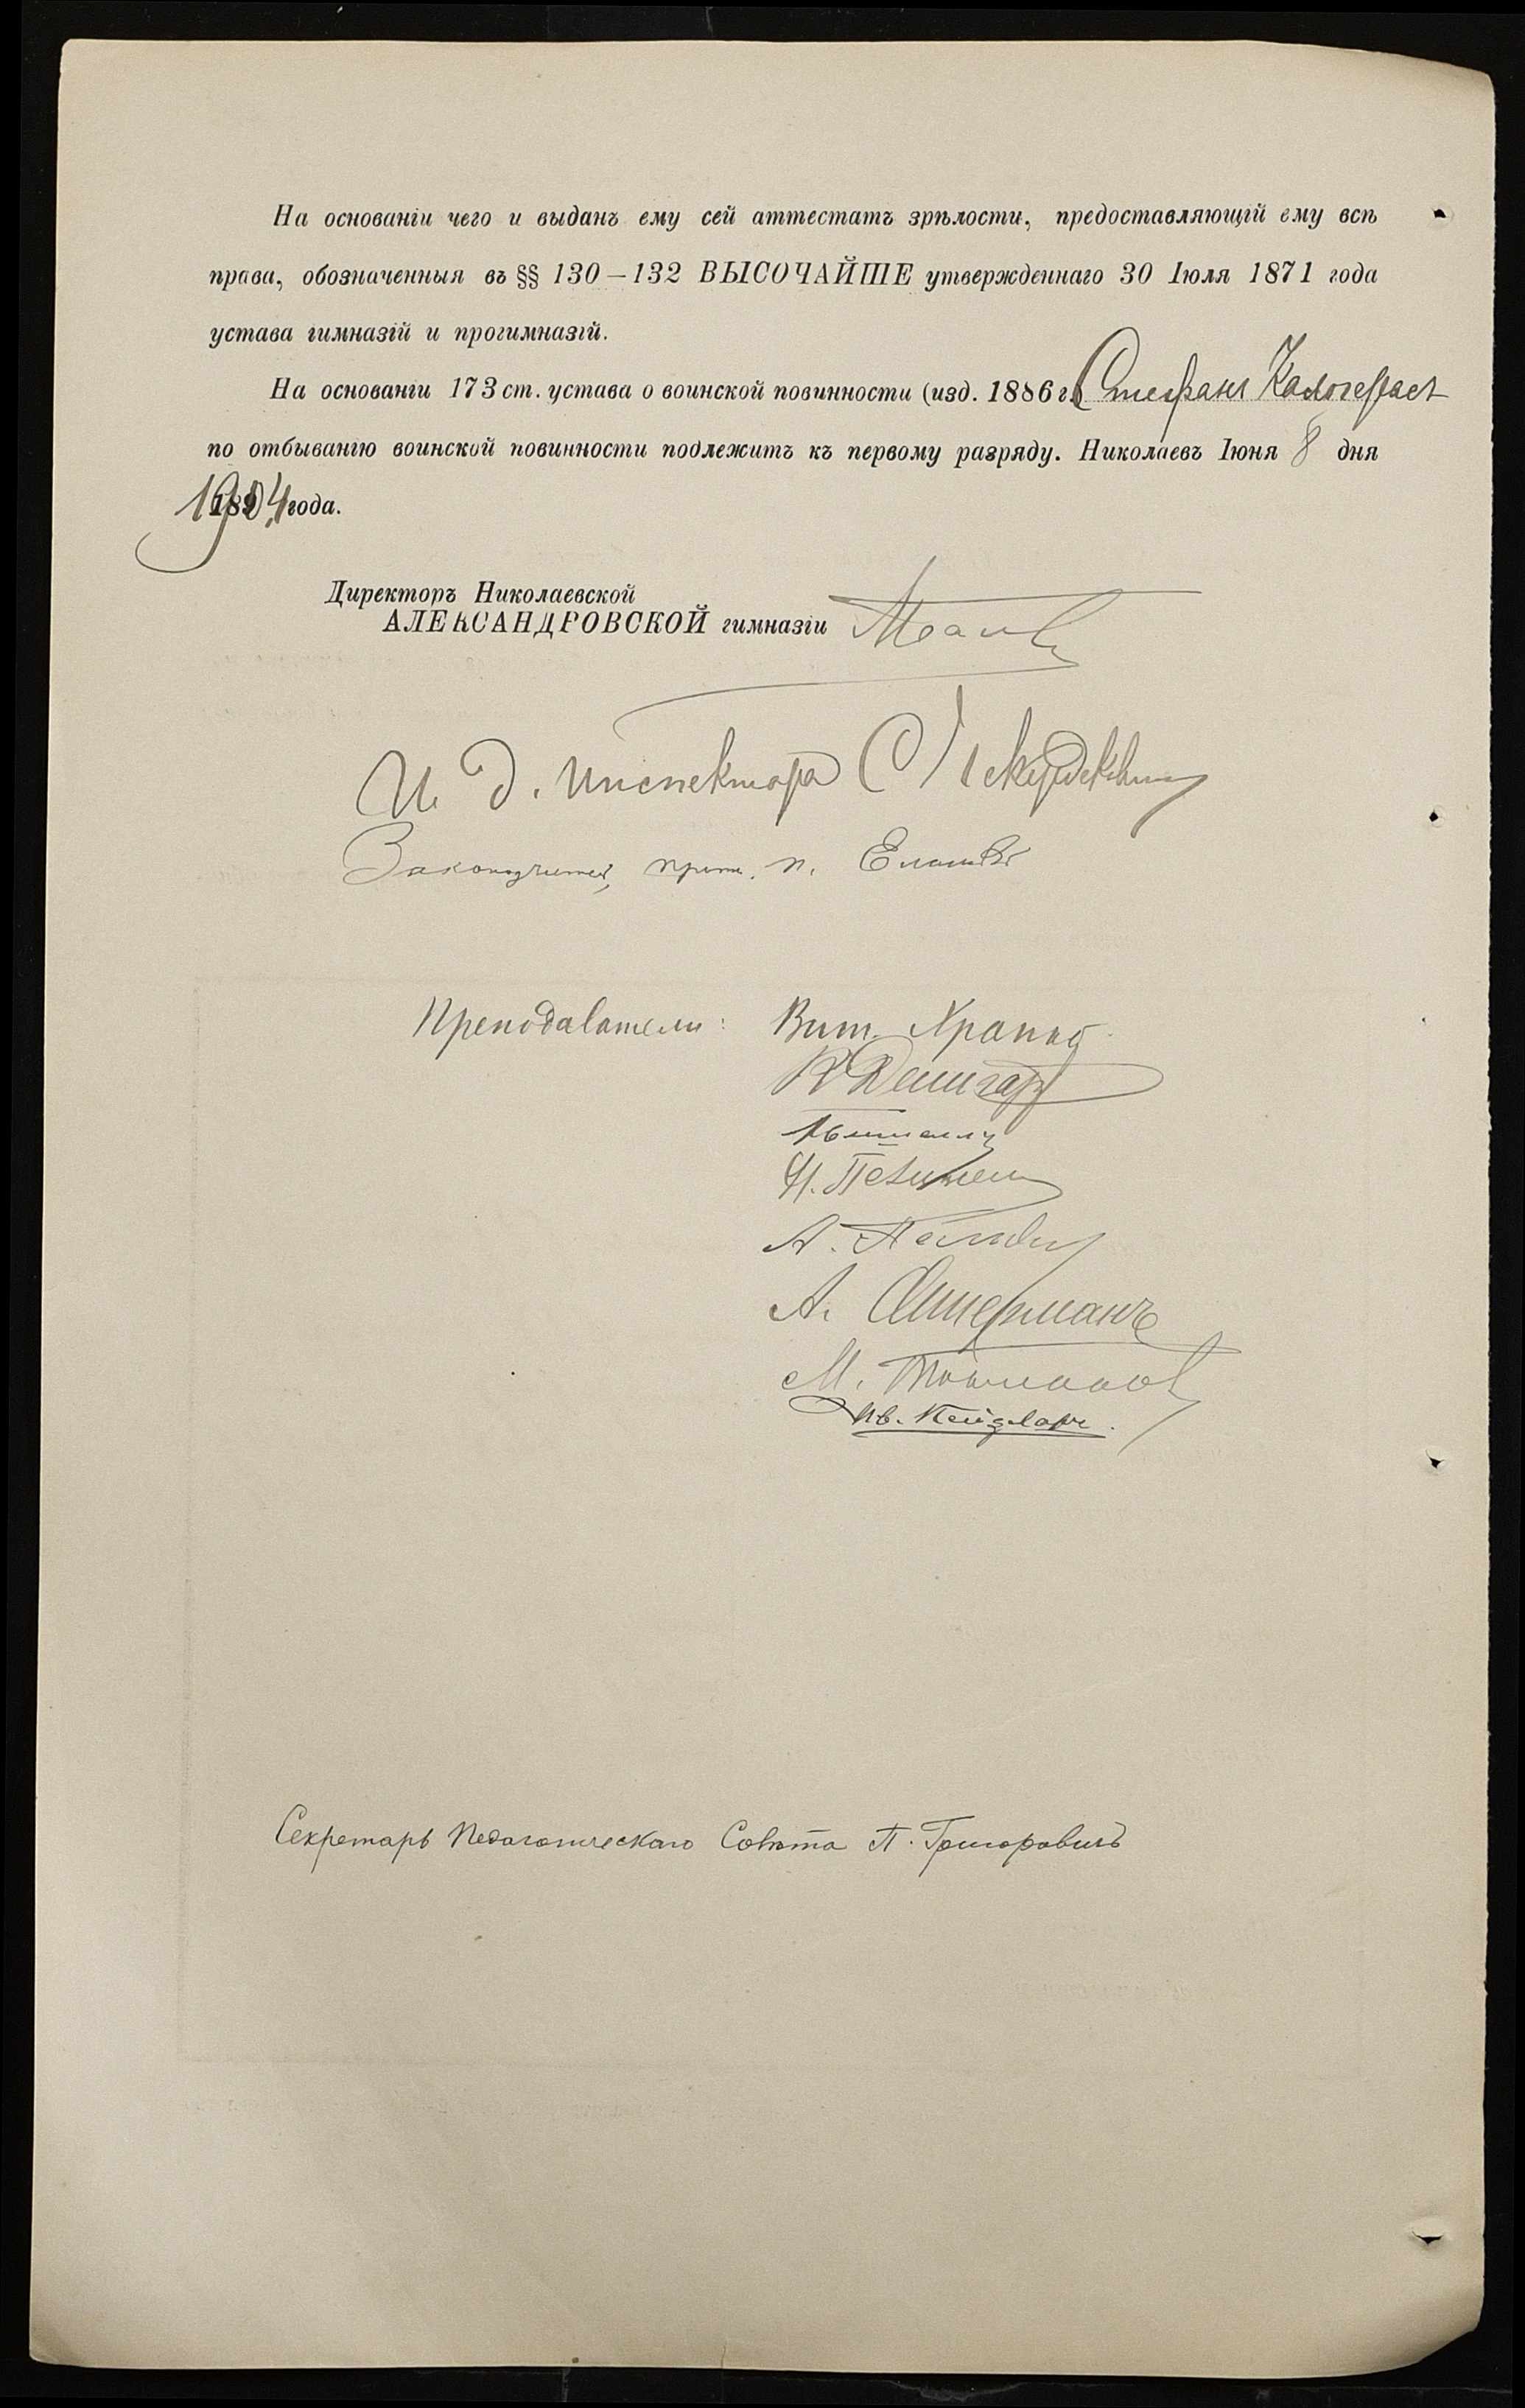 На основаніи чего и выданъ ему сей аттестатъ зрѣлости, предоставляющій ему всѣ
права, обозначенныя въ §§ 130—132 ВЫСОЧАЙШЕ утвержденнаго 30 Іюля 1871 года
устава гимназій и прогимназій.
На основаніи 173 ст. устава о воинской повинности (изд. 1886 г.) Стефанъ Калогерасъ
по отбыванію воинской повинности подлежитъ къ первому разряду. Николаевъ Іюня 8 дня
1904 года.
Директоръ Николаевской
АЛЕКСАНДРОВСКОЙ гимназіи
И. д. Инспектора С.
Законоучитель, прот. п.
Преподаватели: Вит.
А.
А.
М.
Ив.
Секретарь Педагогическаго Совѣта П. Григоровичъ